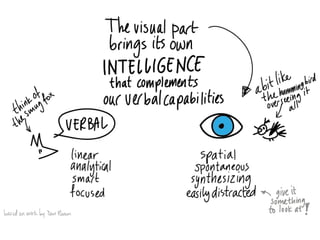 The visual part
brings its own
INTELLIGENCE
that complements
our verbal capabilities
think of
the smug fox
VERBAL
linear
analytical
smart
focused
a bit like
the hummingbird
overseeing it
all
spatial
spontaneous
synthesizing
easily distracted
give it
something
to look at!
based on work by Dan Roam